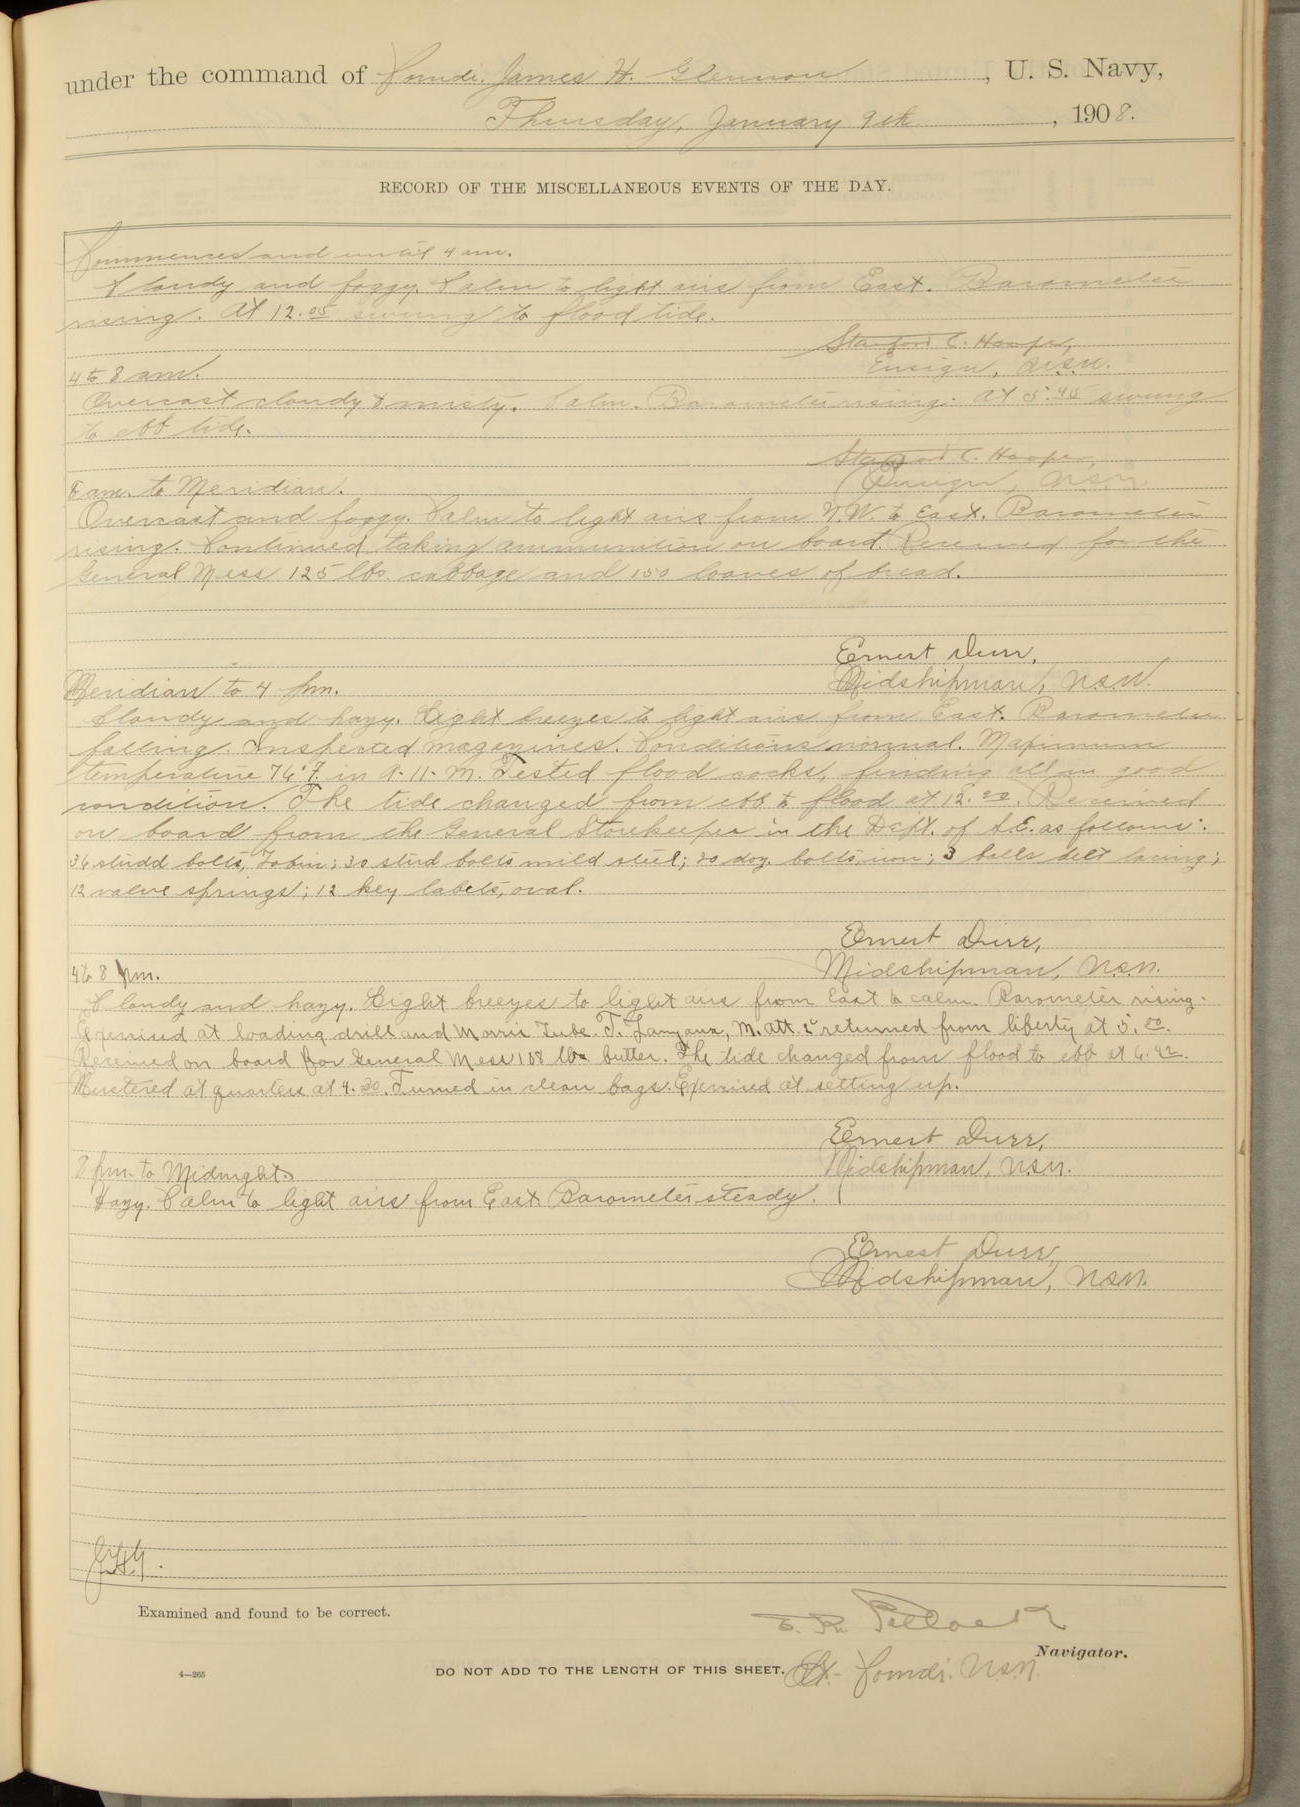 under the command of Comdr. James H. Glennon, U. S. Navy,
Thursday, January 9th, 1908.
RECORD OF THE MISCELLANEOUS EVENTS OF THE DAY.
Commences and until 4 am.
Cloudy and foggy. Calm to light airs from East. Barometer
rising. At 12.05 swung to flood tide.
Stanford C. Hooper,
Ensign, U.S.N.
4 to 8 am.
Overcast cloudy & misty. Calm. Barometer rising. At 5.45 swung
to ebb tide.
Stanford C. Hooper,
Ensign, U.S.N.
8 am. to Meridian.
Overcast and foggy. Calm to light airs from N.W. to East. Barometer
rising. Continued taking ammunition on board. Received for the
General Mess 125 lbs. cabbage and 150 loaves of bread.
Ernest Durr,
Midshipman, U.S.N.
Meridian to 4 pm.
Cloudy and hazy. Light breezes to light airs from East. Barometer
falling. Inspected magazines. Conditions normal. Maximum
temperature 76°.7 in A-11-M. Tested flood cocks, finding all in good
condition. The tide changed from ebb to flood at 12.20. Received
on board from the General Storekeeper in the Dept. of S.E. as follows:
36 studd bolts, Tobin; 30 stud bolts mild steel; 20 doz. bolts, iron; 3 balls belt lacing;
12 valve springs; 12 key labels, oval.
Ernest Durr,
Midshipman, U.S.N.
4 to 8 pm.
Cloudy and hazy. Light breezes to light airs from East to calm. Barometer rising.
Exercised at loading drill and Morris Tube. T. M. Att. 2c returned from liberty at 5.20.
Received on board for General Mess 108 lbs. butter. The tide changed from flood to ebb at 6.42.
Mustered at quarters at 4.30. Turned in clean bags. Exercised at setting up.
Ernest Durr,
Midshipman, U.S.N.
8 pm. to Midnight.
Hazy. Calm to light airs from East. Barometer steady.
Ernest Durr,
Midshipman, U.S.N.
J.H.G.
Examined and found to be correct.
Pollock
Navigator.
4—265
DO NOT ADD TO THE LENGTH OF THIS SHEET.
Lt-Comdr. U.S.N.